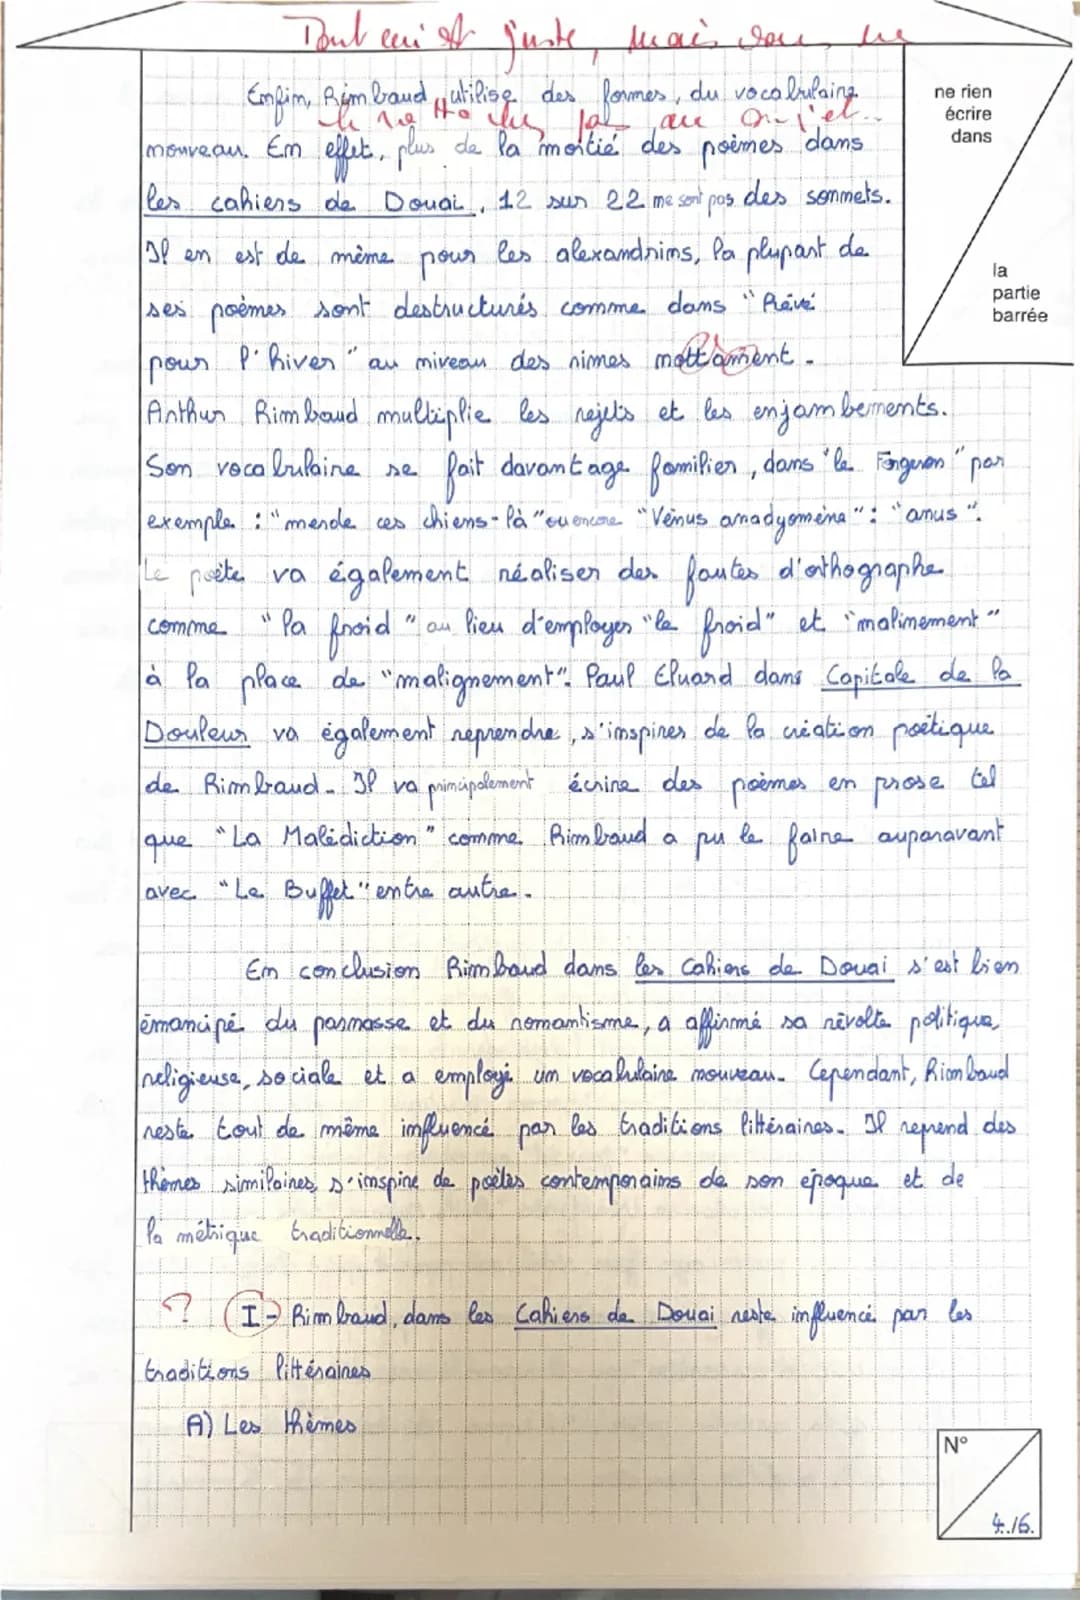 Tout ceci est juste, mais vous ne
le rattachez pas au sujet..
ne rien
écrire
dans
la
partie
barrée
Enfin, Rimbaud utilise des formes, du vocabulaire
nouveau. En effet, plus de la moitié des poèmes dans
les cahiers de Douai, 12 sur 22 ne sont pas des sonnets.
Il en est de même pour les alexandrins, la plupart de
ses poèmes sont destructurés comme dans "Rêvé
pour l'hiver" au niveau des rimes nottament.
Arthur Rimbaud multiplie les rejets et les enjambements.
Son vocabulaire se fait davantage familier, dans "le Forgeron" par
exemple : "merde ces chiens-là" ou encore "Vénus anadyomène": "anus".
Le poète va également réaliser des fautes d'orthographe
comme "la froid" au lieu d'employer "le froid" et "malinement"
à la place de "malignement". Paul Eluard dans Capitale de la
Douleur va également reprendre, s'inspirer de la création poétique
de Rimbaud. Il va principalement écrire des poèmes en prose tel
que "La Malédiction" comme Rimbaud a pu le faire auparavant
avec "Le Buffet" entre autre.
En conclusion Rimbaud dans les Cahiers de Douai s'est bien
émancipé du parnasse et du romantisme, a affirmé sa révolte politique,
religieuse, sociale et a employé un vocabulaire nouveau. Cependant, Rimbaud
reste tout de même influencé par les traditions littéraires. Il reprend des
thèmes similaires, s'inspire de poètes contemporains de son époque et de
la métrique traditionnelle.
? I- Rimbaud, dans les Cahiers de Douai reste influencé par les
traditions littéraires
A) Les thèmes
N°
4./6.